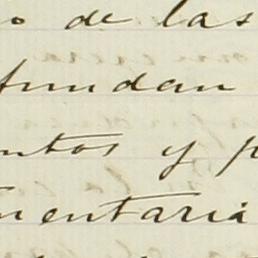 o de las
fundan
ntos y p
mentaria